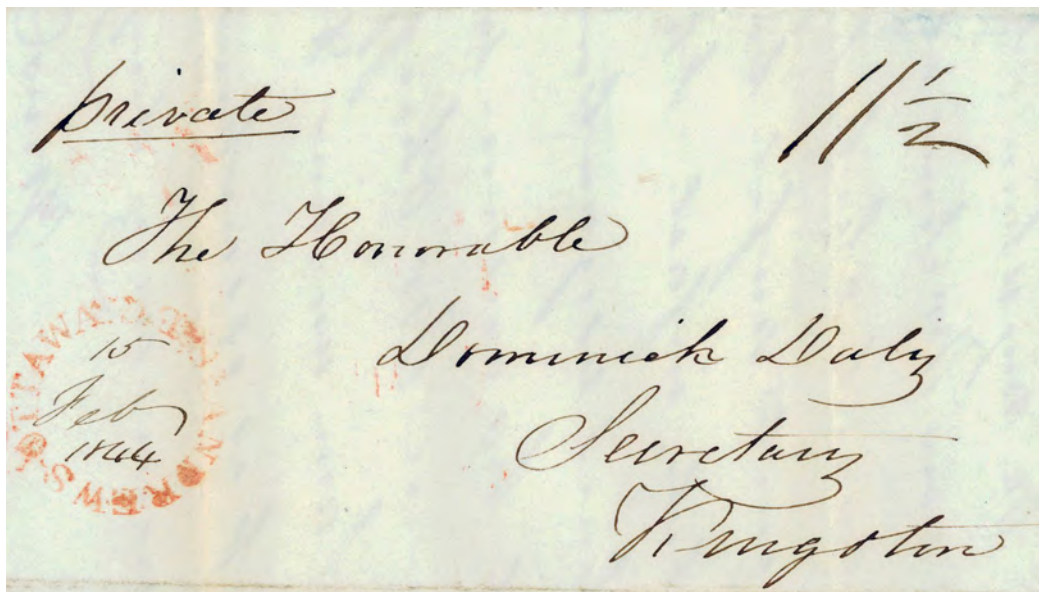 private
11 1/2
The Honorable
Dominick Daly
Secretary
Kingston
ST ANDREWS OTTAWA C.E.
15
Feb
1844